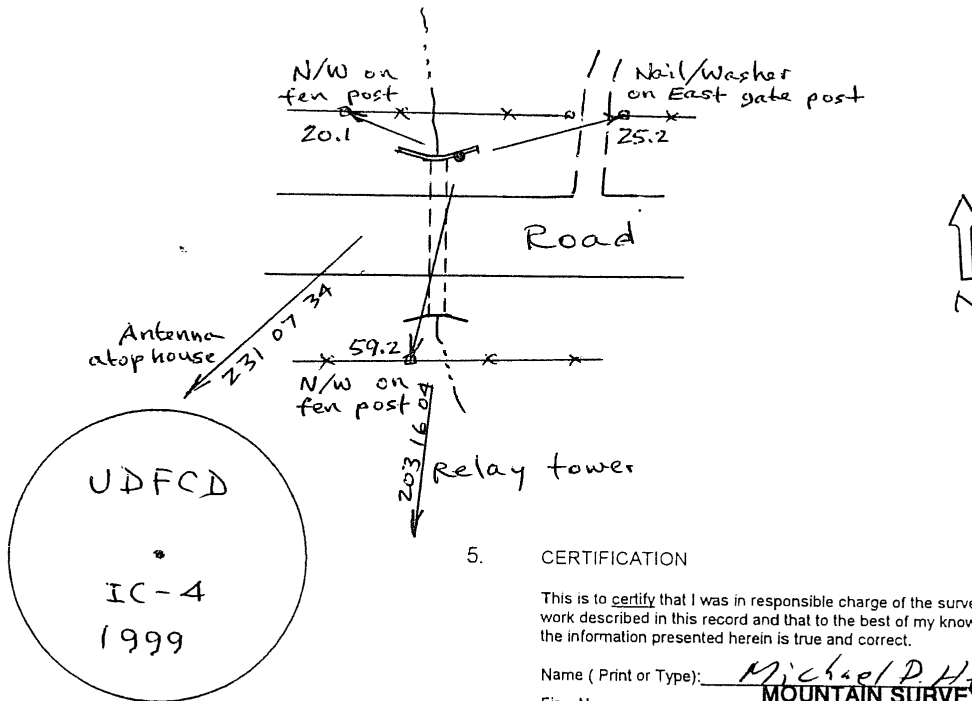 N/W on
fen post
Nail/Washer
on East gate post
20.1
25.2
Road
N
Antenna
atop house
231 07 34
59.2
N/W on
fen post
203 16 04
Relay tower
UDFCD
IC-4
1999
5. CERTIFICATION
This is to certify that I was in responsible charge of the surve
work described in this record and that to the best of my know
the information presented herein is true and correct.
Name ( Print or Type): Michael D. H
MOUNTAIN SURVE